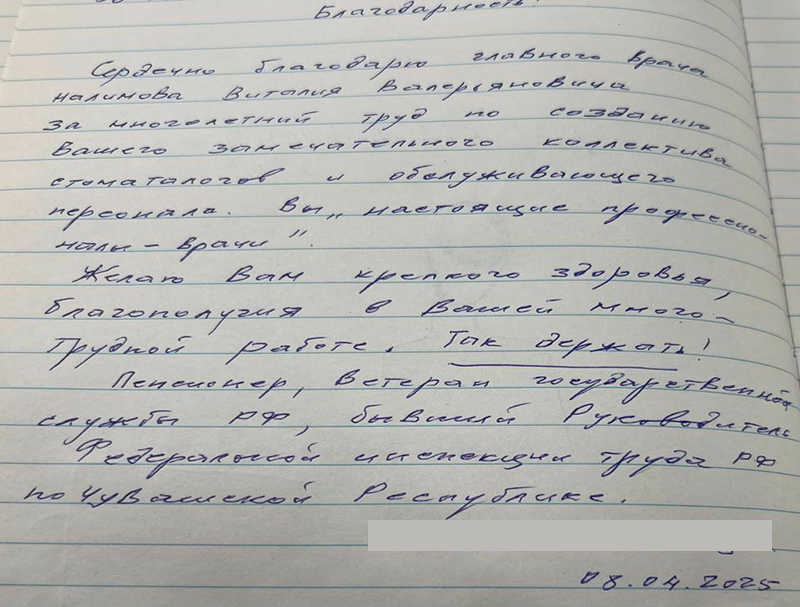 Благодарность.
Сердечно благодарю главного врача
Налимова Виталия Валерьяновича
за многолетний труд по созданию
Вашего замечательного коллектива
стоматалогов и обслуживающего
персонала. Вы „настоящие професси-
налы - врачи".
Желаю Вам крепкого здоровья,
благополучия в Вашей много-
трудной работе. Так держать!
Пенсионер, Ветеран государственной
службы РФ, бывший Руководитель
Федеральной инспекции труда РФ
по Чувашской Республике.
08.04.2025